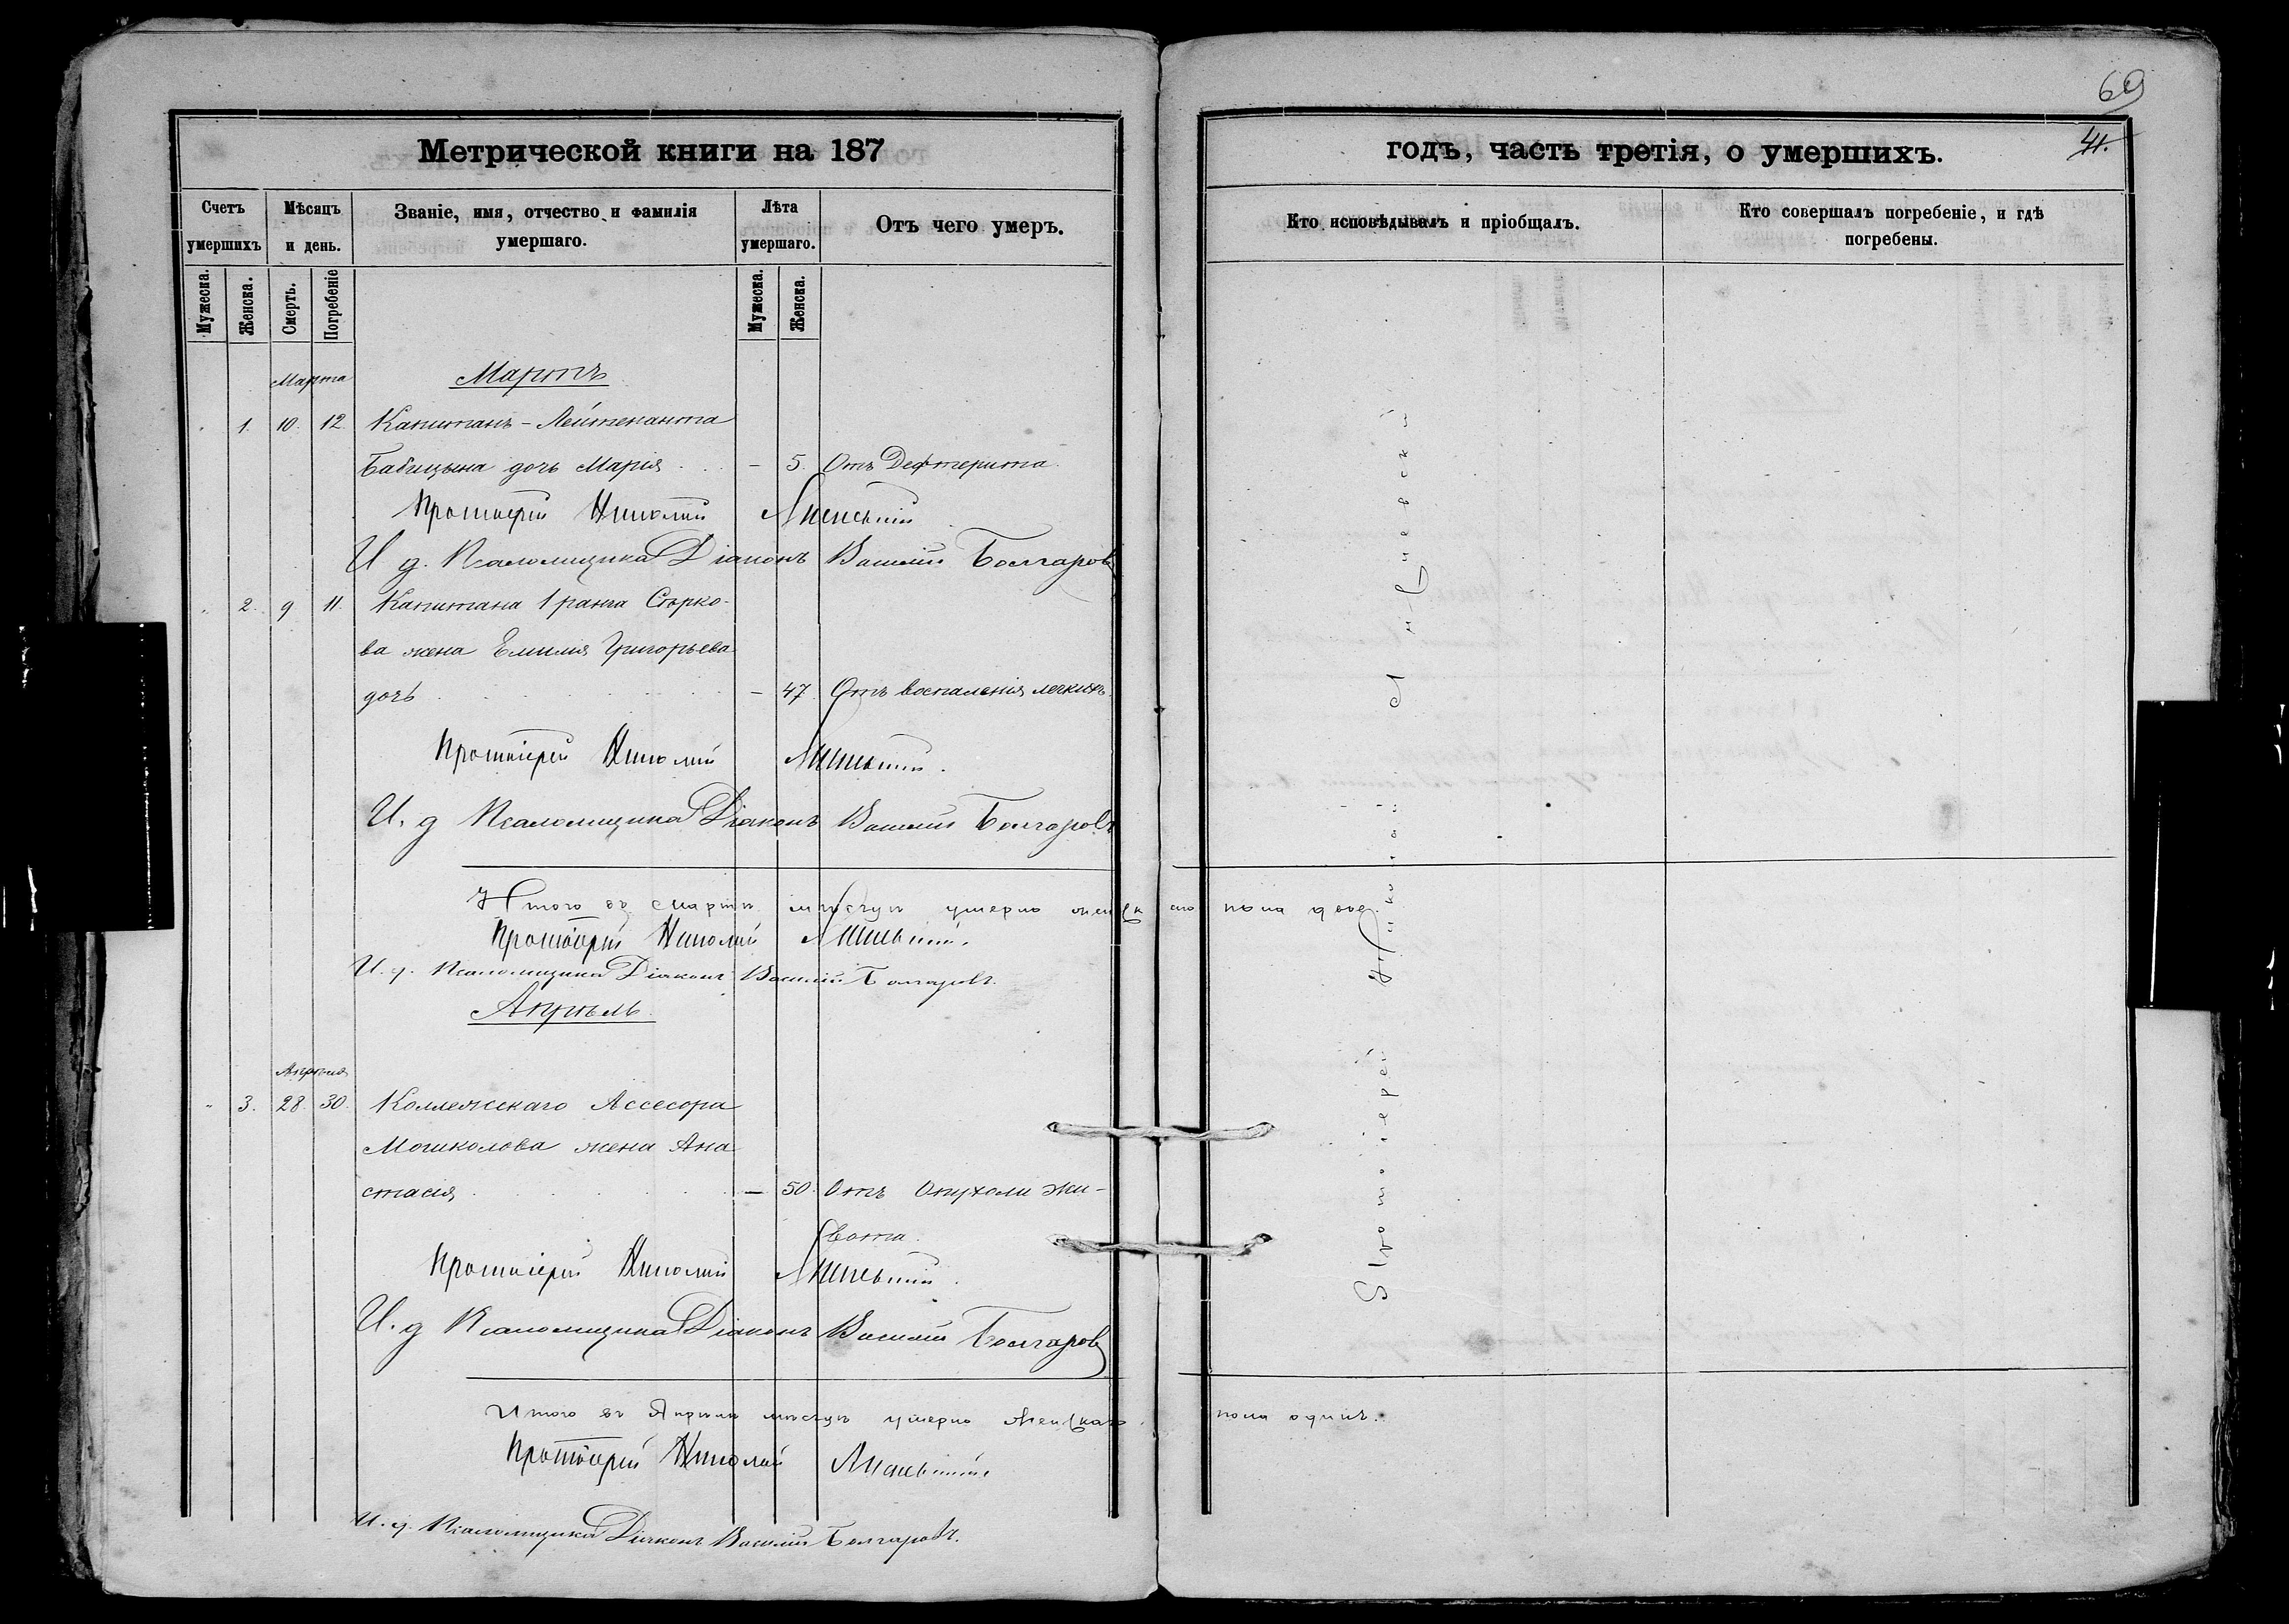 69
41.
Метрической книги на 187
годъ, часть третія, о умершихъ.
Счетъ умершихъ
Мѣсяцъ и день.
Званіе, имя, отчество и фамилія умершаго.
Лѣта умершаго.
Отъ чего умеръ.
Кто исповѣдывалъ и пріобщалъ.
Кто совершалъ погребеніе, и гдѣ погребены.
Мужеска.
Женска.
Смерть.
Погребеніе
Мужеска.
Женска.
Марта
Мартъ
1. 10. 12. Капитанъ-Лейтенанта
Бабицына дочь Марія - 5. Отъ Дефтерита.
Протоіерей Николай
И д. Псаломщика Діаконъ Василій Болгаровъ
2. 9 11. Капитана 1 ранга
ва жена Емилія Григорьева
дочь - 47. Отъ воспаленія легкихъ.
Протоіерей Николай
И. д Псаломщика Діаконъ Василій Болгаровъ
Итого въ Мартѣ мѣсяцѣ умерло женскаго пола двое.
Протоіерей Николай
И. д. Псаломщика Діаконъ Василій Болгаровъ.
Апрѣль.
Апрѣля
3. 28. 30. Коллежскаго Ассесора
Мошколова жена Ана
стасія - 50. Отъ Опухоли жи-
вота.
Протоіерей Николай
И. д Псаломщика Діаконъ Василій Болгаровъ
Итого въ Апрѣлѣ мѣсяцѣ умерло Женскаго пола одинъ.
Протоіерей Николай
И. д. Псаломщика Діаконъ Василій Болгаровъ.
Протоіерей Николай